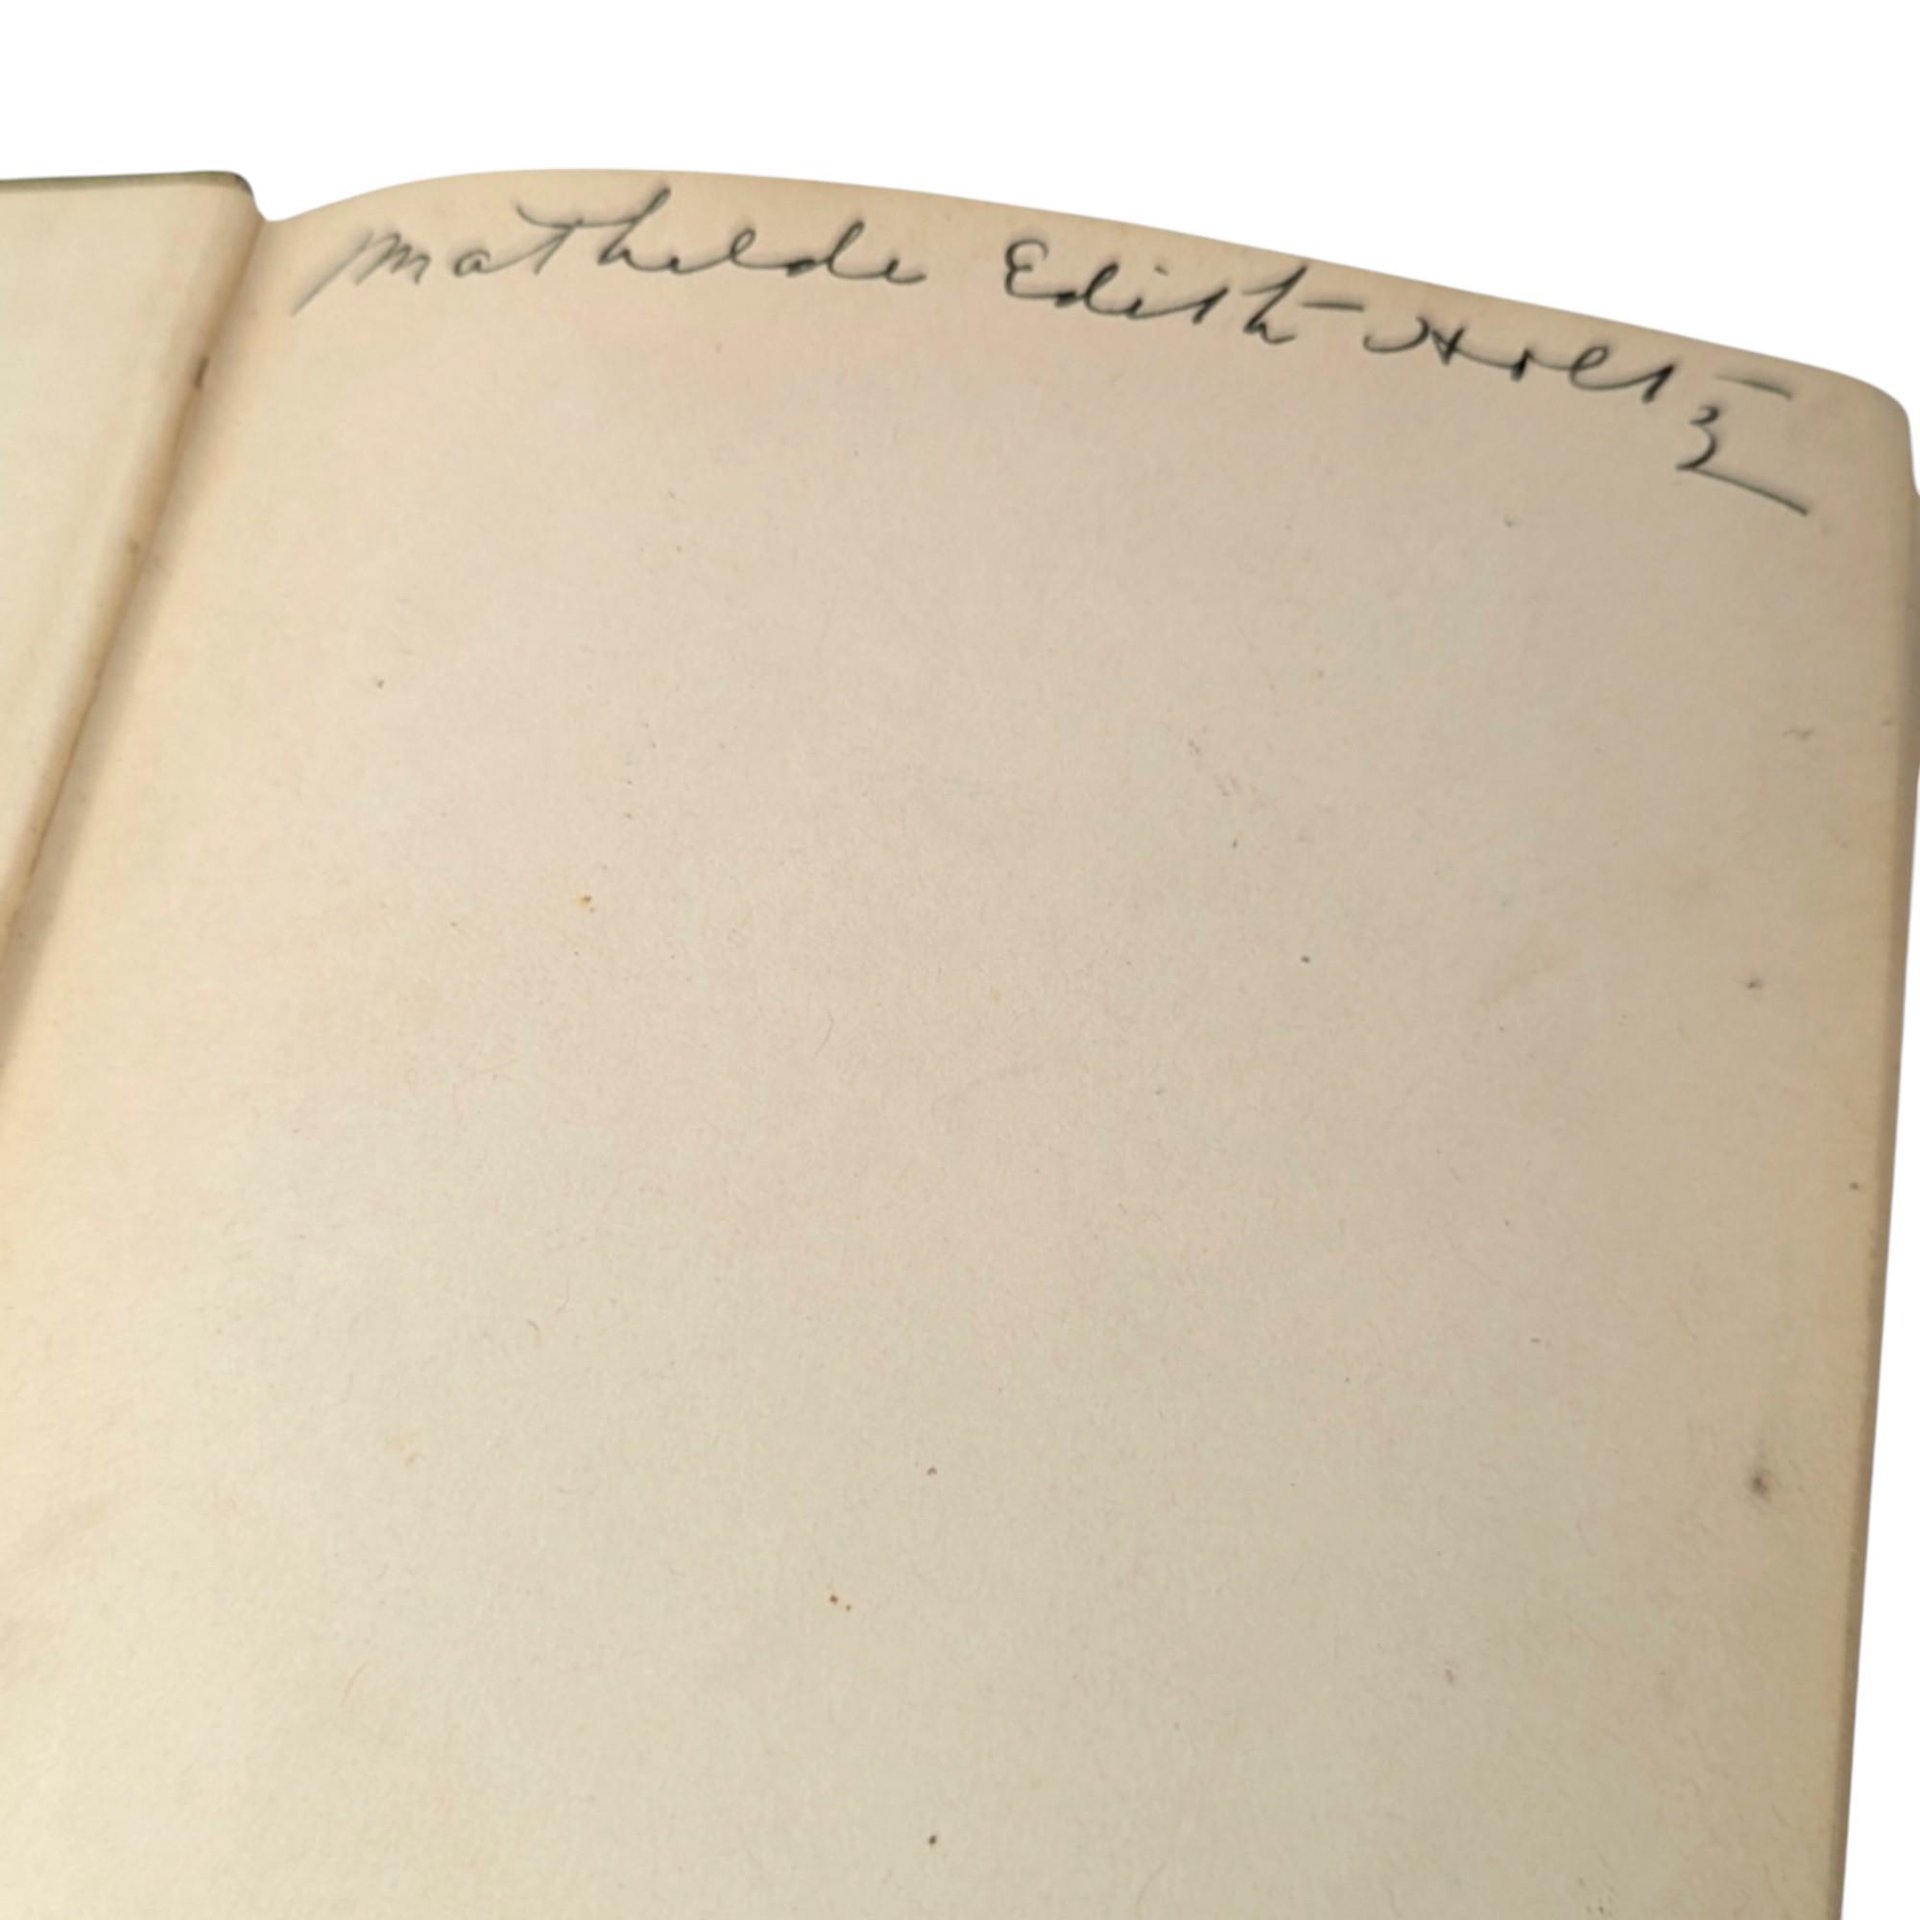 Mathilde Edith Holtz